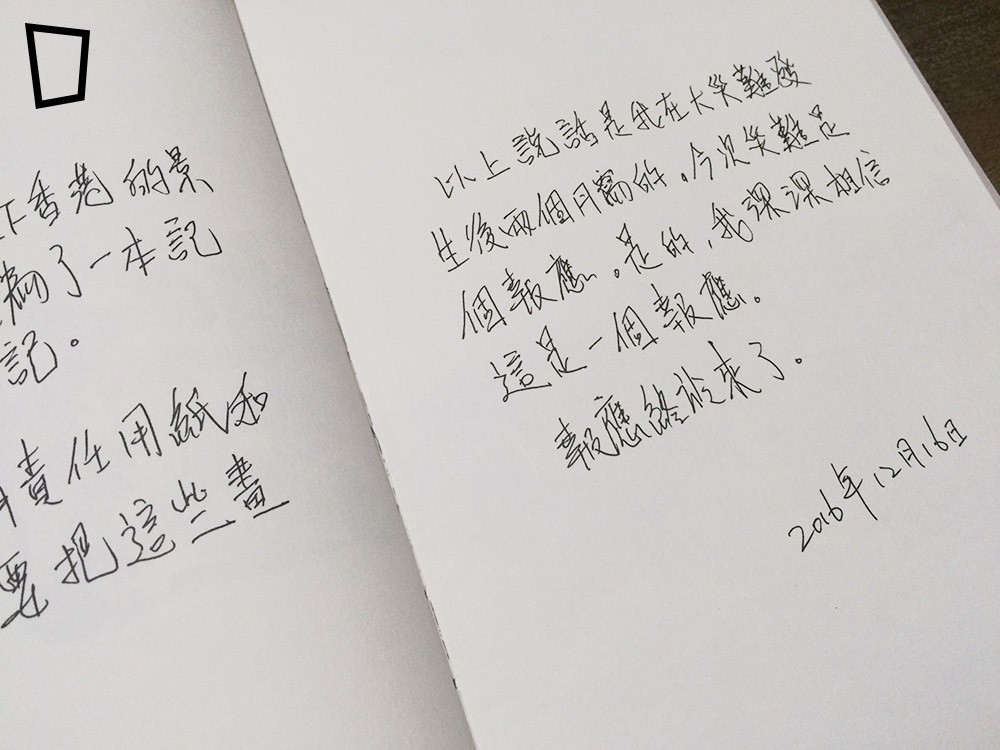 下香港的景
寫了一本記
記。
責任用紙和
要把這些畫
以上說話是我在大災難發
生後兩個月寫的。今次災難是
個報應。是的，我深深相信
這是一個報應。
報應終於來了。
2016年12月16日